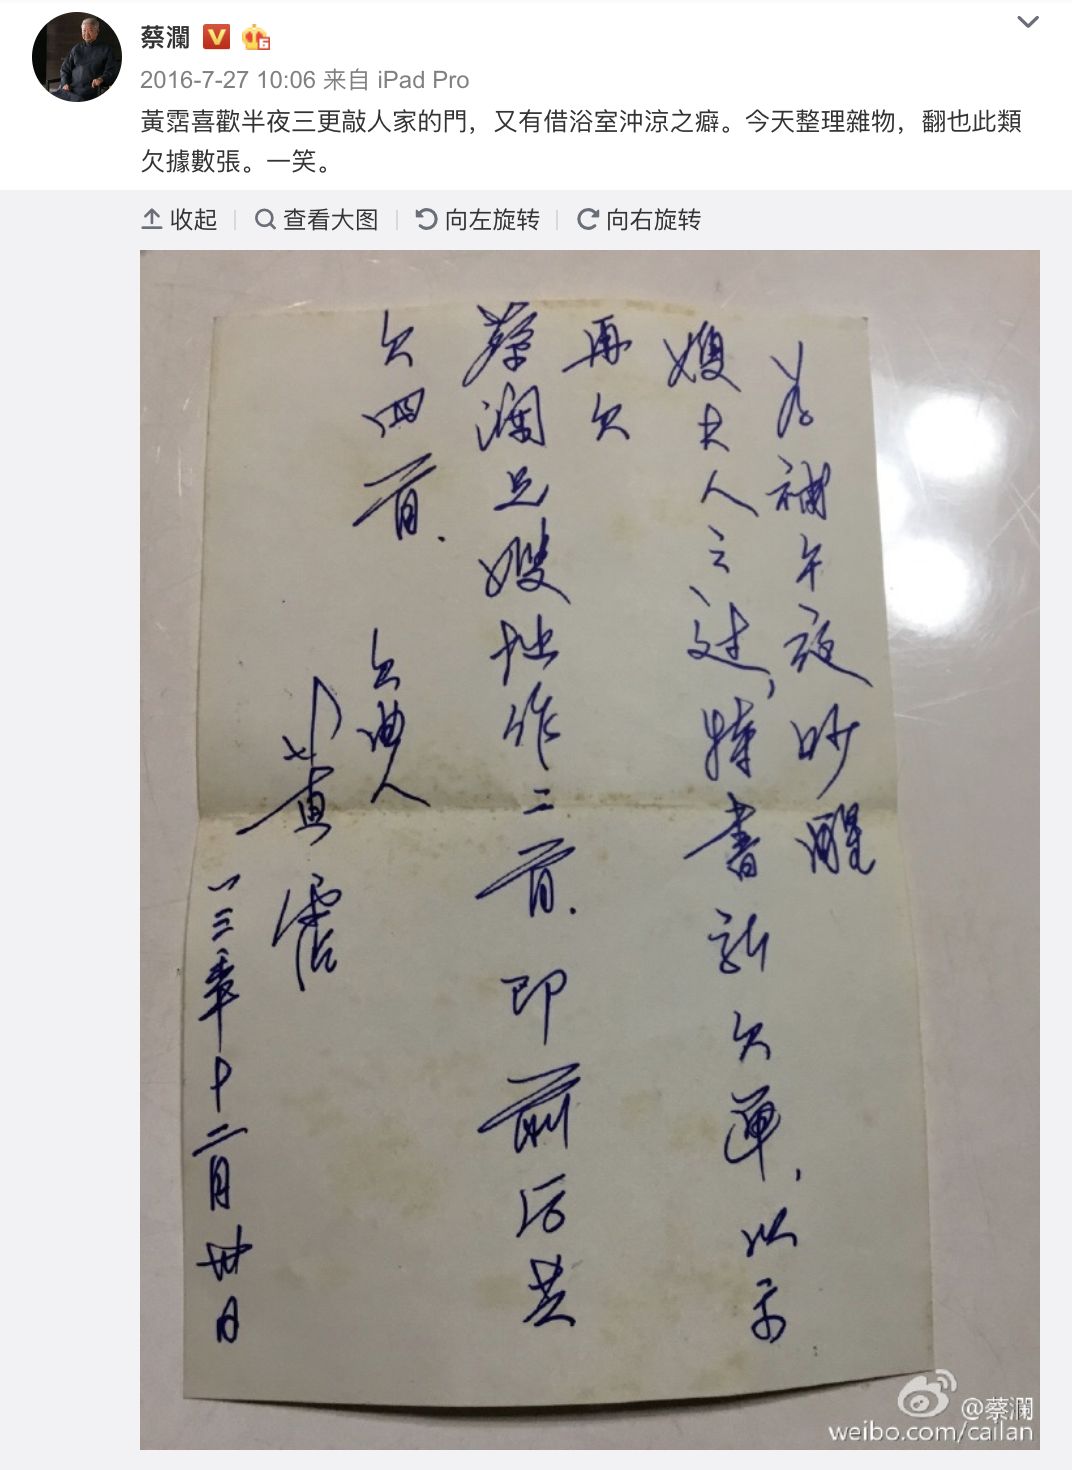 蔡瀾
2016-7-27 10:06 来自 iPad Pro
黃霑喜歡半夜三更敲人家的門，又有借浴室沖涼之癖。今天整理雜物，翻也此類
欠據數張。一笑。
收起 查看大图 向左旋转 向右旋转
為補午夜吵醒
嫂夫人之过，特書新欠單，以示
再欠
蔡瀾兄嫂拙作二首．即前后共
欠四首．
欠曲人
黃霑
十二月卅日
@蔡瀾
weibo.com/cailan